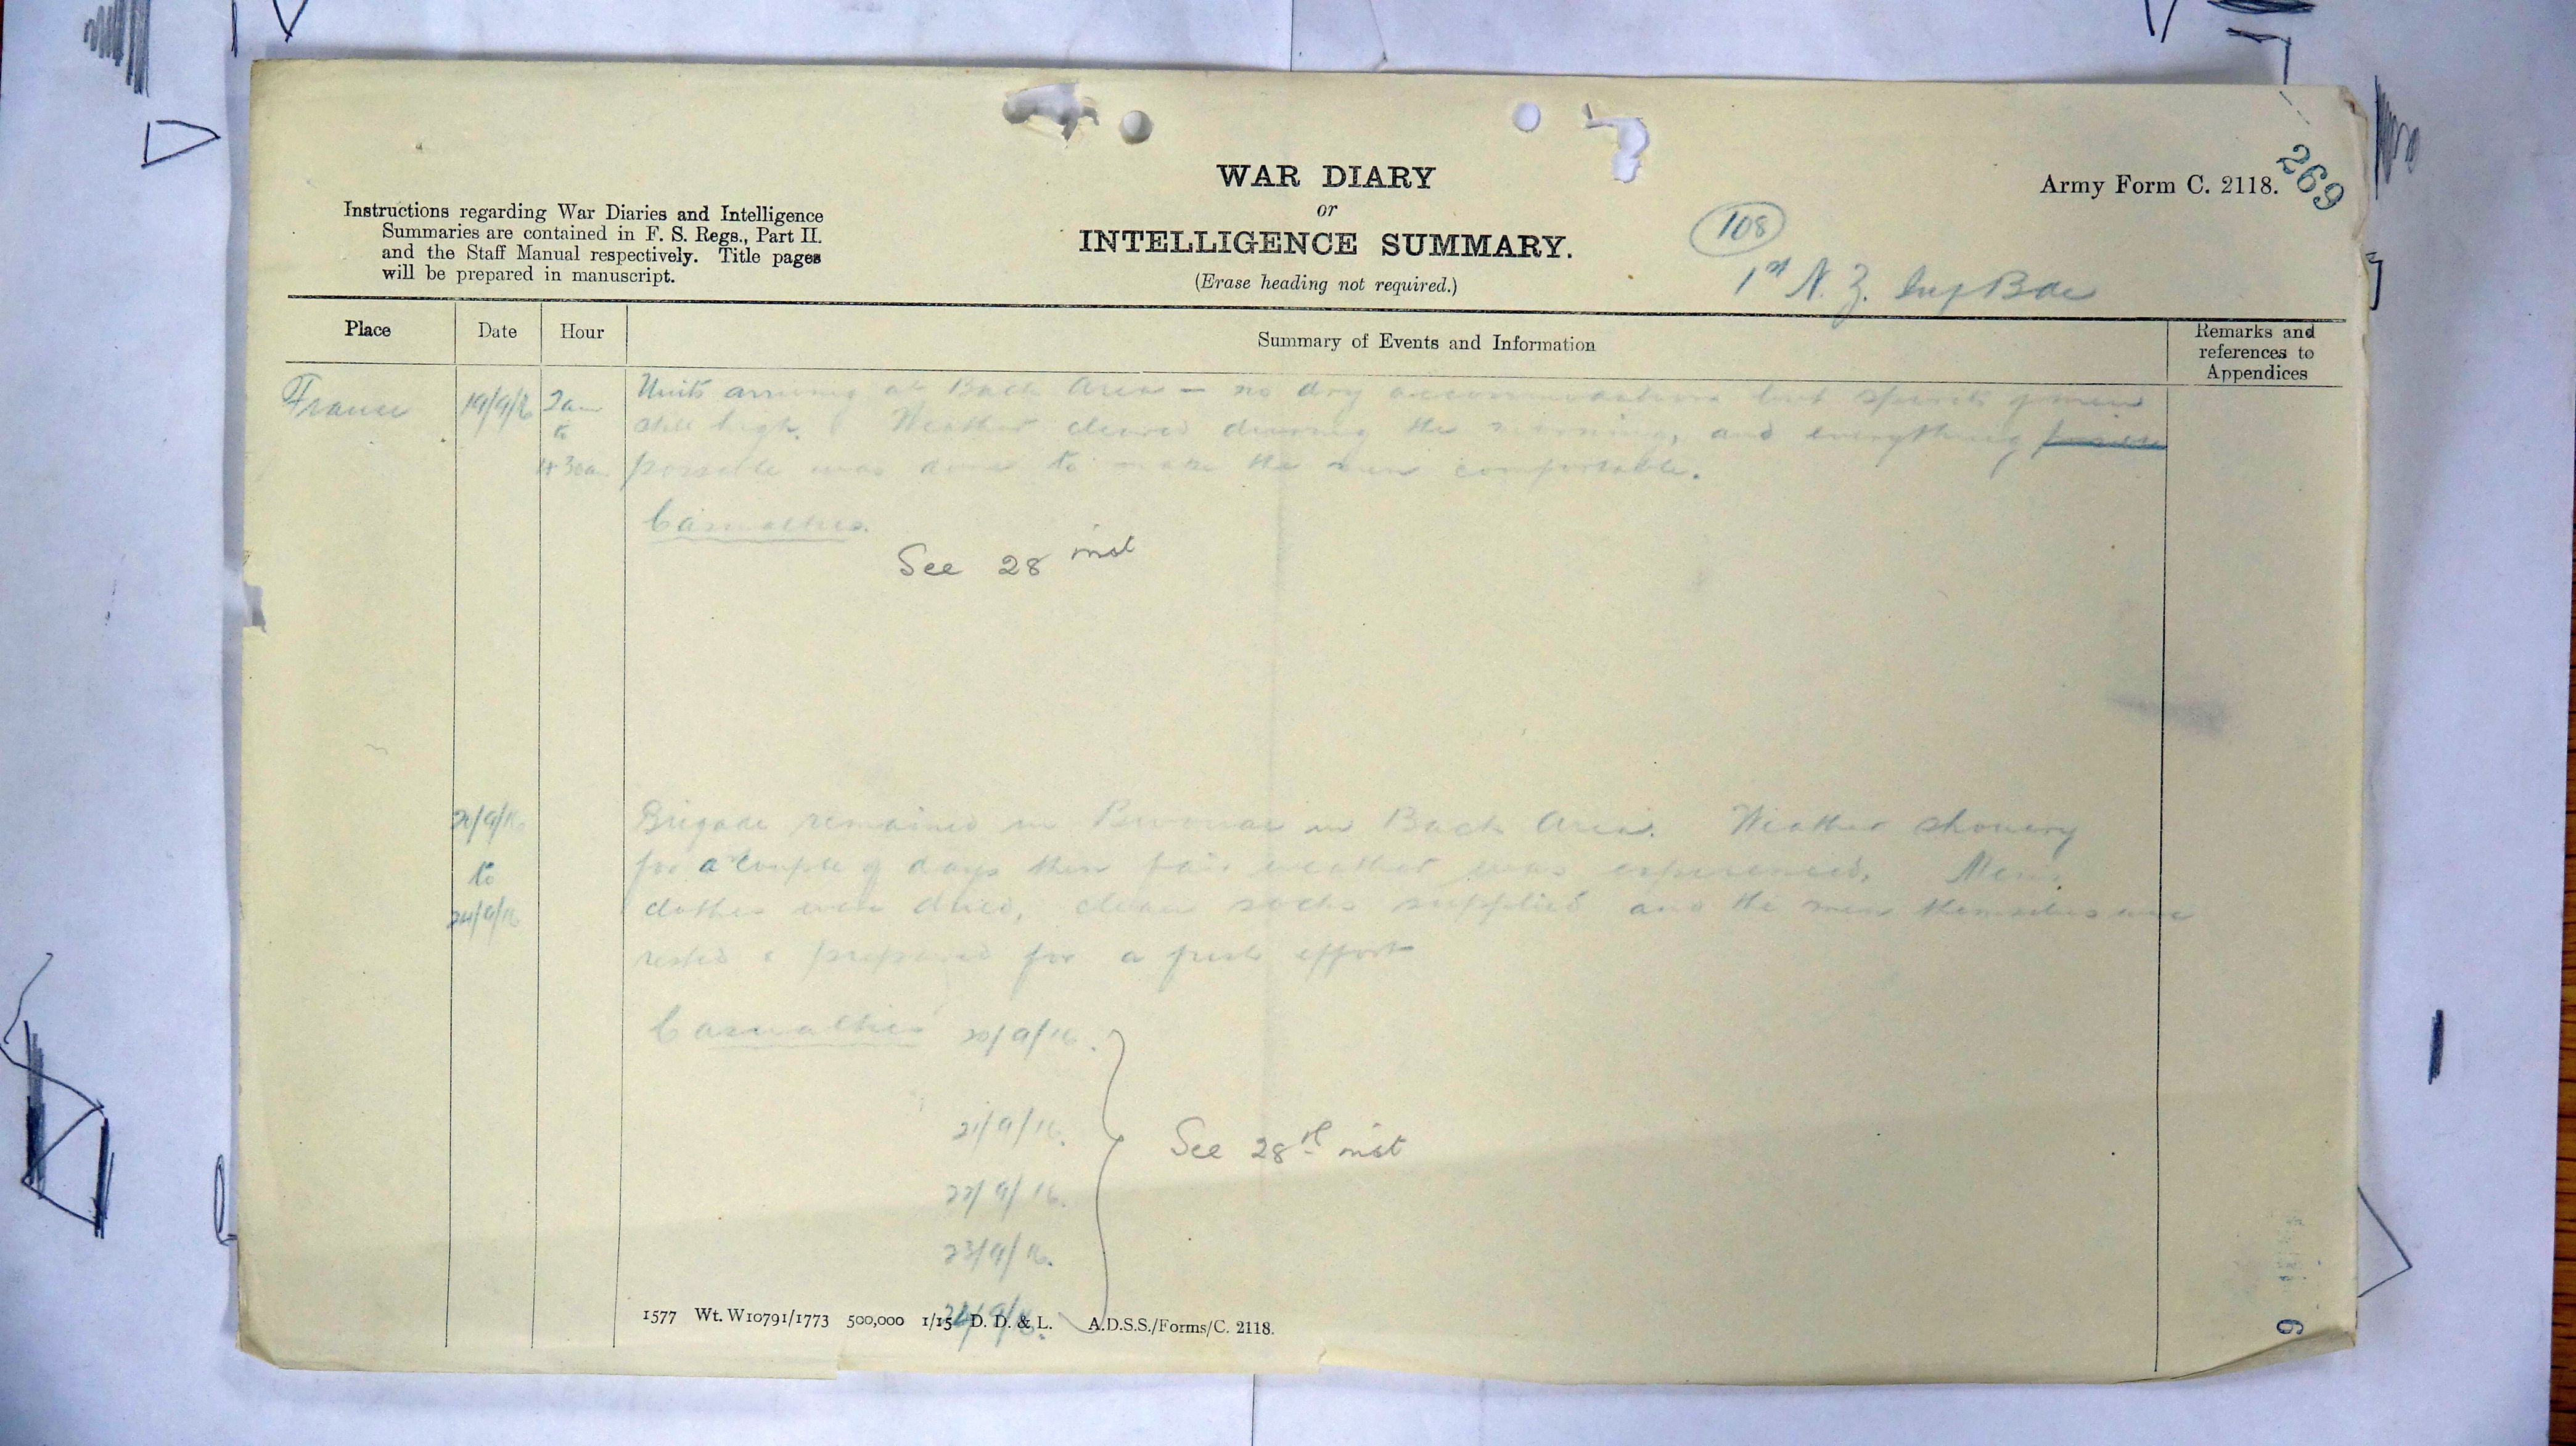 WAR DIARY
or
INTELLIGENCE SUMMARY.
(Erase heading not required.)
Instructions regarding War Diaries and Intelligence
Summaries are contained in F. S. Regs., Part II.
and the Staff Manual respectively. Title pages
will be prepared in manuscript.
Army Form C. 2118.
269
108
1st N. Z. Inf Bde
Place
Date
Hour
Summary of Events and Information
Remarks and
references to
Appendices
France
19/9/16
2am
to
4 30am
Units arriving at Back Area — no dry accommodation but spirits of men
still high. Weather cleared during the morning, and everything
possible was done to make the men comfortable.
Casualties.
See 28 inst
to
24/9/16
Brigade remained in Bivouac in Back Area. Weather showery
for a couple of days then fair weather was experienced. Mens
clothes were dried, clean socks supplied and the men themselves were
rested & prepared for a fresh effort
Casualties 20/9/16.
21/9/16.
See 28th inst
22/9/16.
23/9/16.
24/9/16.
1577 Wt. W10791/1773 500,000 1/15 D. D. & L. A.D.S.S./Forms/C. 2118.